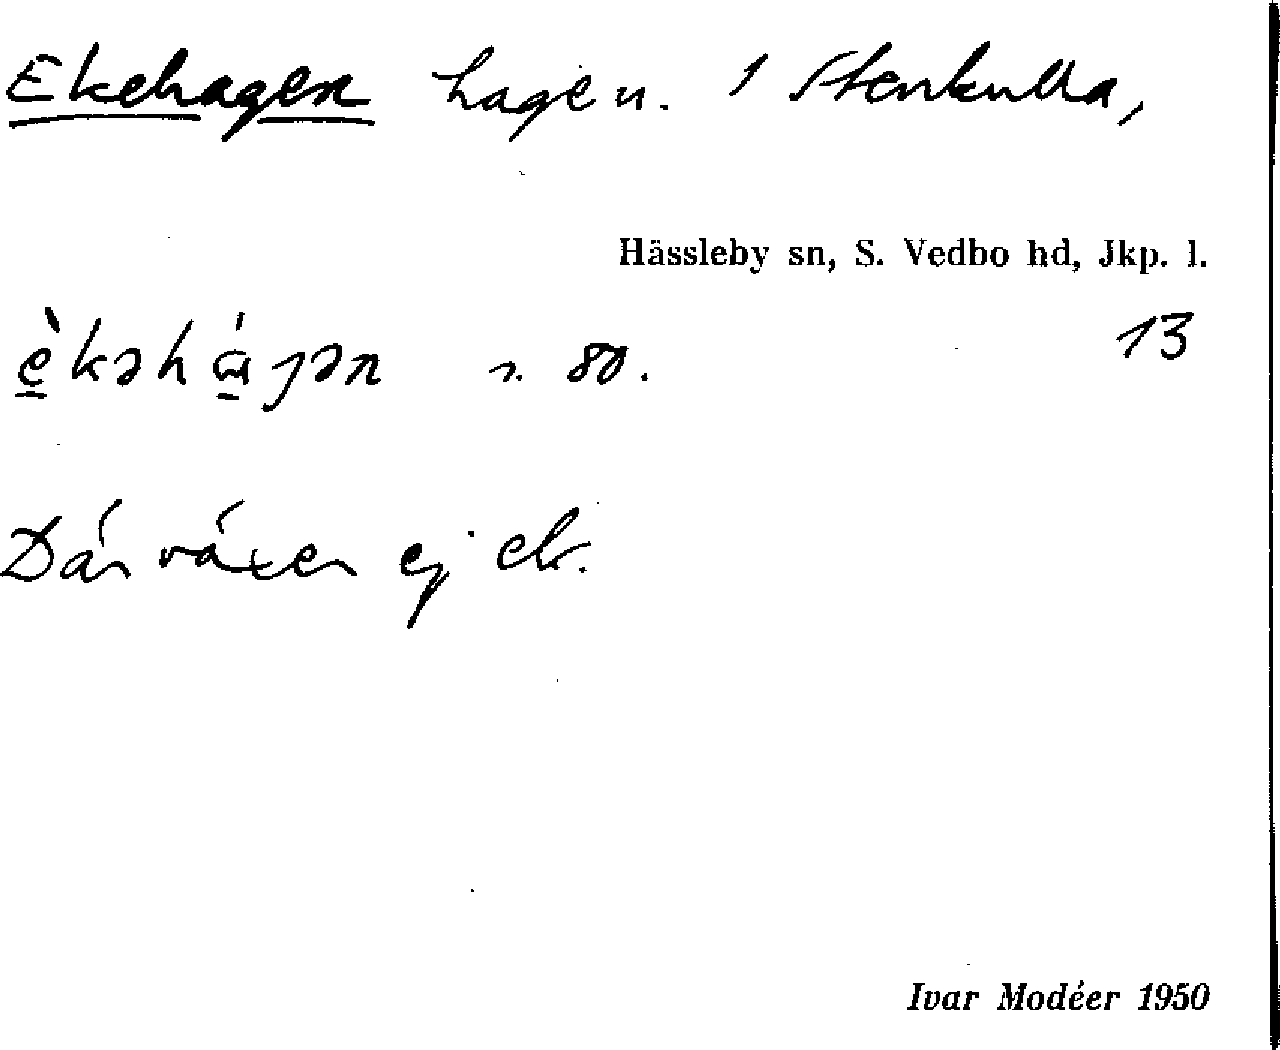 Ekehagen hagen. 1 Stenkulla,
Hässleby sn, S. Vedbo hd, Jkp. l.
13
è̱kəhá̱ɟən n. 80.
Där växer ej ek.
Ivar Modéer 1950